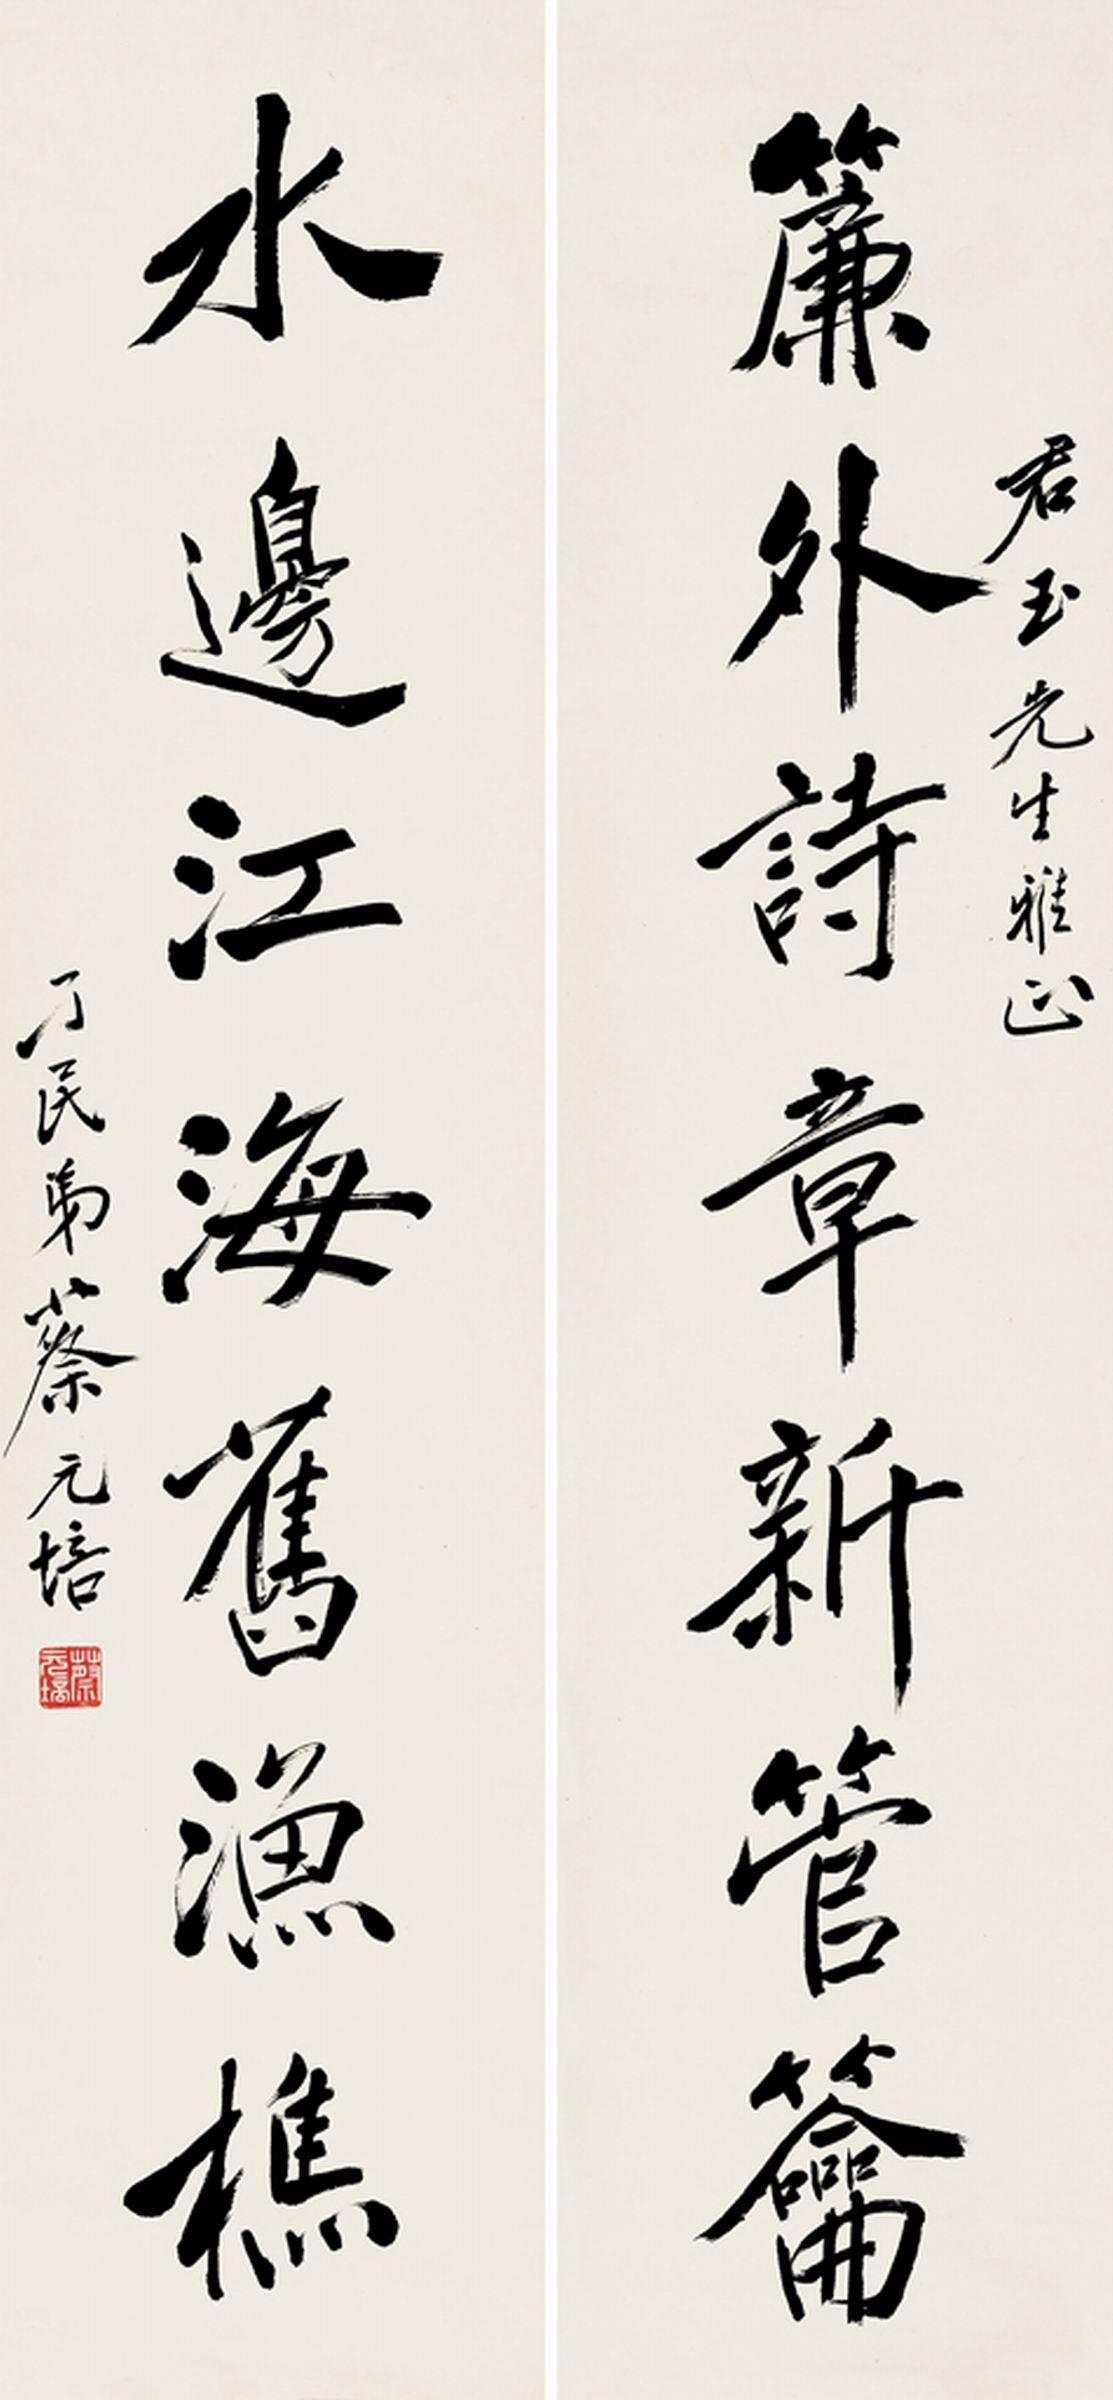 君玉先生雅正
簾外詩章新管籥
水邊江海舊漁樵
孑民弟蔡元培
蔡元培